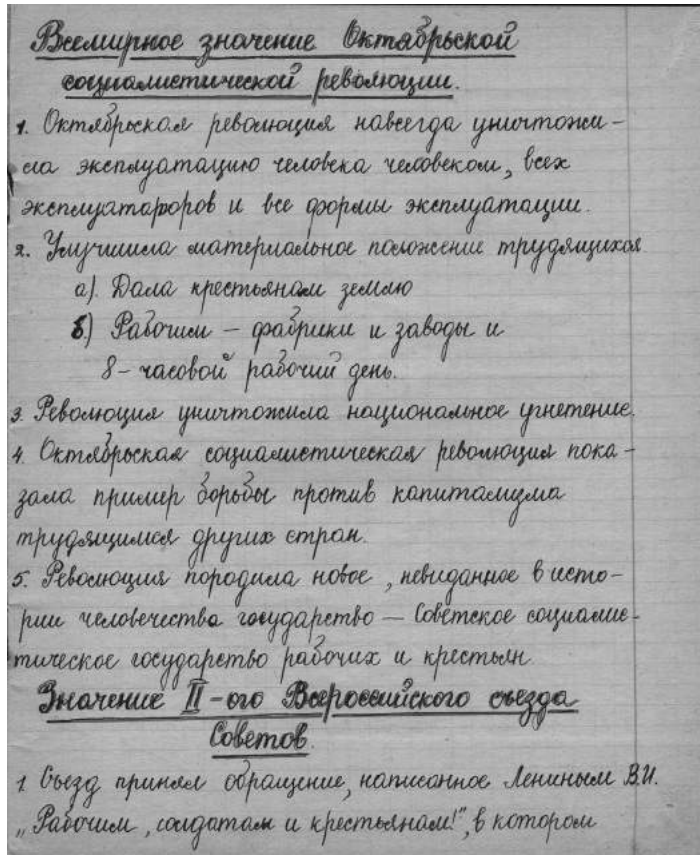 Всемирное значение Октябрьской
социалистической революции.
1. Октябрьская революция навсегда уничтожи-
ла эксплуатацию человека человеком, всех
эксплуататоров и все формы эксплуатации.
2. Улучшила материальное положение трудящихся
а). Дала крестьянам землю
б.) Рабочим – фабрики и заводы и
8-часовой рабочий день.
3. Революция уничтожила национальное угнетение.
4. Октябрьская социалистическая революция пока-
зала пример борьбы против капитализма
трудящимся других стран.
5. Революция породила новое, невиданное в исто-
рии человечества государство – Советское социалис-
тическое государство рабочих и крестьян.
Значение II-ого Всероссийского съезда
Советов.
1 Съезд принял обращение, написанное Лениным В.И.
„Рабочим, солдатам и крестьянам!", в котором